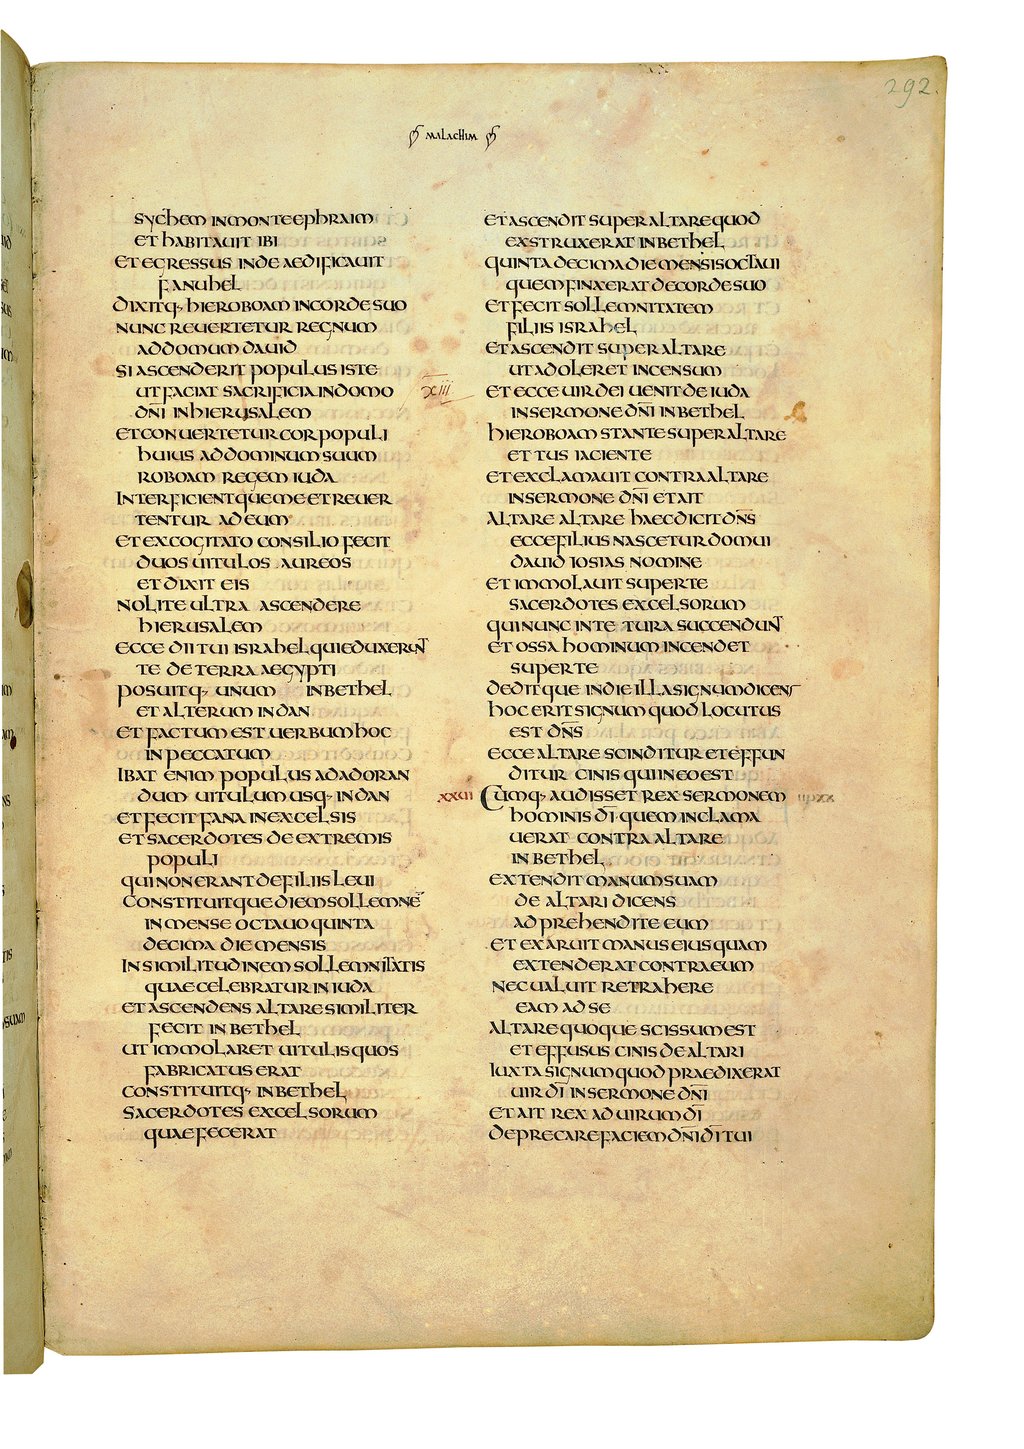 292.
MALACHIM
SYCHEM IN MONTE EPHRAIM
ET HABITAUIT IBI
ET EGRESSUS INDE AEDIFICAUIT
FANUHEL
DIXITQ· HIEROBOAM IN CORDE SUO
NUNC REUERTETUR REGNUM
AD DOMUM DAUID
SI ASCENDERIT POPULUS ISTE
UT FACIAT SACRIFICIA IN DOMO
DN̄I IN HIERUSALEM
ET CONUERTETUR COR POPULI
HUIUS AD DOMINUM SUUM
ROBOAM REGEM IUDA
INTERFICIENTQUE ME ET REUER
TENTUR AD EUM
ET EXCOGITATO CONSILIO FECIT
DUOS UITULOS AUREOS
ET DIXIT EIS
NOLITE ULTRA ASCENDERE
HIERUSALEM
ECCE DII TUI ISRAHEL QUI EDUXERUNT
TE DE TERRA AEGYPTI
POSUITQ· UNUM IN BETHEL
ET ALTERUM IN DAN
ET FACTUM EST UERBUM HOC
IN PECCATUM
IBAT ENIM POPULUS AD ADORAN
DUM UITULUM USQ· IN DAN
ET FECIT FANA IN EXCELSIS
ET SACERDOTES DE EXTREMIS
POPULI
QUI NON ERANT DE FILIIS LEUI
CONSTITUITQUE DIEM SOLLEMNĒ
IN MENSE OCTAUO QUINTA
DECIMA DIE MENSIS
IN SIMILITUDINEM SOLLEMNITATIS
QUAE CELEBRATUR IN IUDA
ET ASCENDENS ALTARE SIMILITER
FECIT IN BETHEL
UT IMMOLARET UITULIS QUOS
FABRICATUS ERAT
CONSTITUITQ· IN BETHEL
SACERDOTES EXCELSORUM
QUAE FECERAT
ET ASCENDIT SUPER ALTARE QUOD
EXSTRUXERAT IN BETHEL
QUINTA DECIMA DIE MENSIS OCTAUI
QUEM FINXERAT DE CORDE SUO
ET FECIT SOLLEMNITATEM
FILIIS ISRAHEL
ET ASCENDIT SUPER ALTARE
UT ADOLERET INCENSUM
XIII
ET ECCE UIR DEI UENIT DE IUDA
IN SERMONE DN̄I IN BETHEL
HIEROBOAM STANTE SUPER ALTARE
ET TUS IACIENTE
ET EXCLAMAUIT CONTRA ALTARE
IN SERMONE DN̄I ET AIT
ALTARE ALTARE HAEC DICIT DN̄S
ECCE FILIUS NASCETUR DOMUI
DAUID IOSIAS NOMINE
ET IMMOLAUIT SUPER TE
SACERDOTES EXCELSORUM
QUI NUNC IN TE TURA SUCCENDUNT
ET OSSA HOMINUM INCENDET
SUPER TE
DEDITQUE IN DIE ILLA SIGNUM DICENS
HOC ERIT SIGNUM QUOD LOCUTUS
EST DN̄S
ECCE ALTARE SCINDITUR ET EFFUN
DITUR CINIS QUI IN EO EST
XXVII CUMQ· AUDISSET REX SERMONEM
HOMINIS DĪ QUEM INCLAMA
UERAT CONTRA ALTARE
IN BETHEL
EXTENDIT MANUM SUAM
DE ALTARI DICENS
ADPREHENDITE EUM
ET EXARUIT MANUS EIUS QUAM
EXTENDERAT CONTRA EUM
NEC UALUIT RETRAHERE
EAM AD SE
ALTARE QUOQUE SCISSUM EST
ET EFFUSUS CINIS DE ALTARI
IUXTA SIGNUM QUOD PRAEDIXERAT
UIR DĪ IN SERMONE DN̄I
ET AIT REX AD UIRUM DĪ
DEPRECARE FACIEM DN̄I DĪ TUI